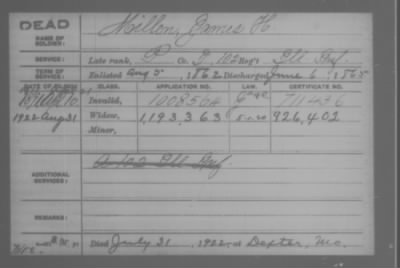 DEAD
NAME OF SOLDIER:
Millon, James H.
SERVICE:
Late rank, P Co. D, 102 Reg't Ill Inf.
TERM OF SERVICE:
Enlisted Aug 5, 1862 Discharged June 6, 1865
DATE OF FILING CLASS. APPLICATION NO. LAW. CERTIFICATE NO.
Invalid, 1008564 711436
1922 Aug 31 Widow, 1,193,363 926,402
Minor,
ADDITIONAL SERVICES:
A 102 Ill Inf
REMARKS:
Died July 31, 1922, at Dexter, Mo.